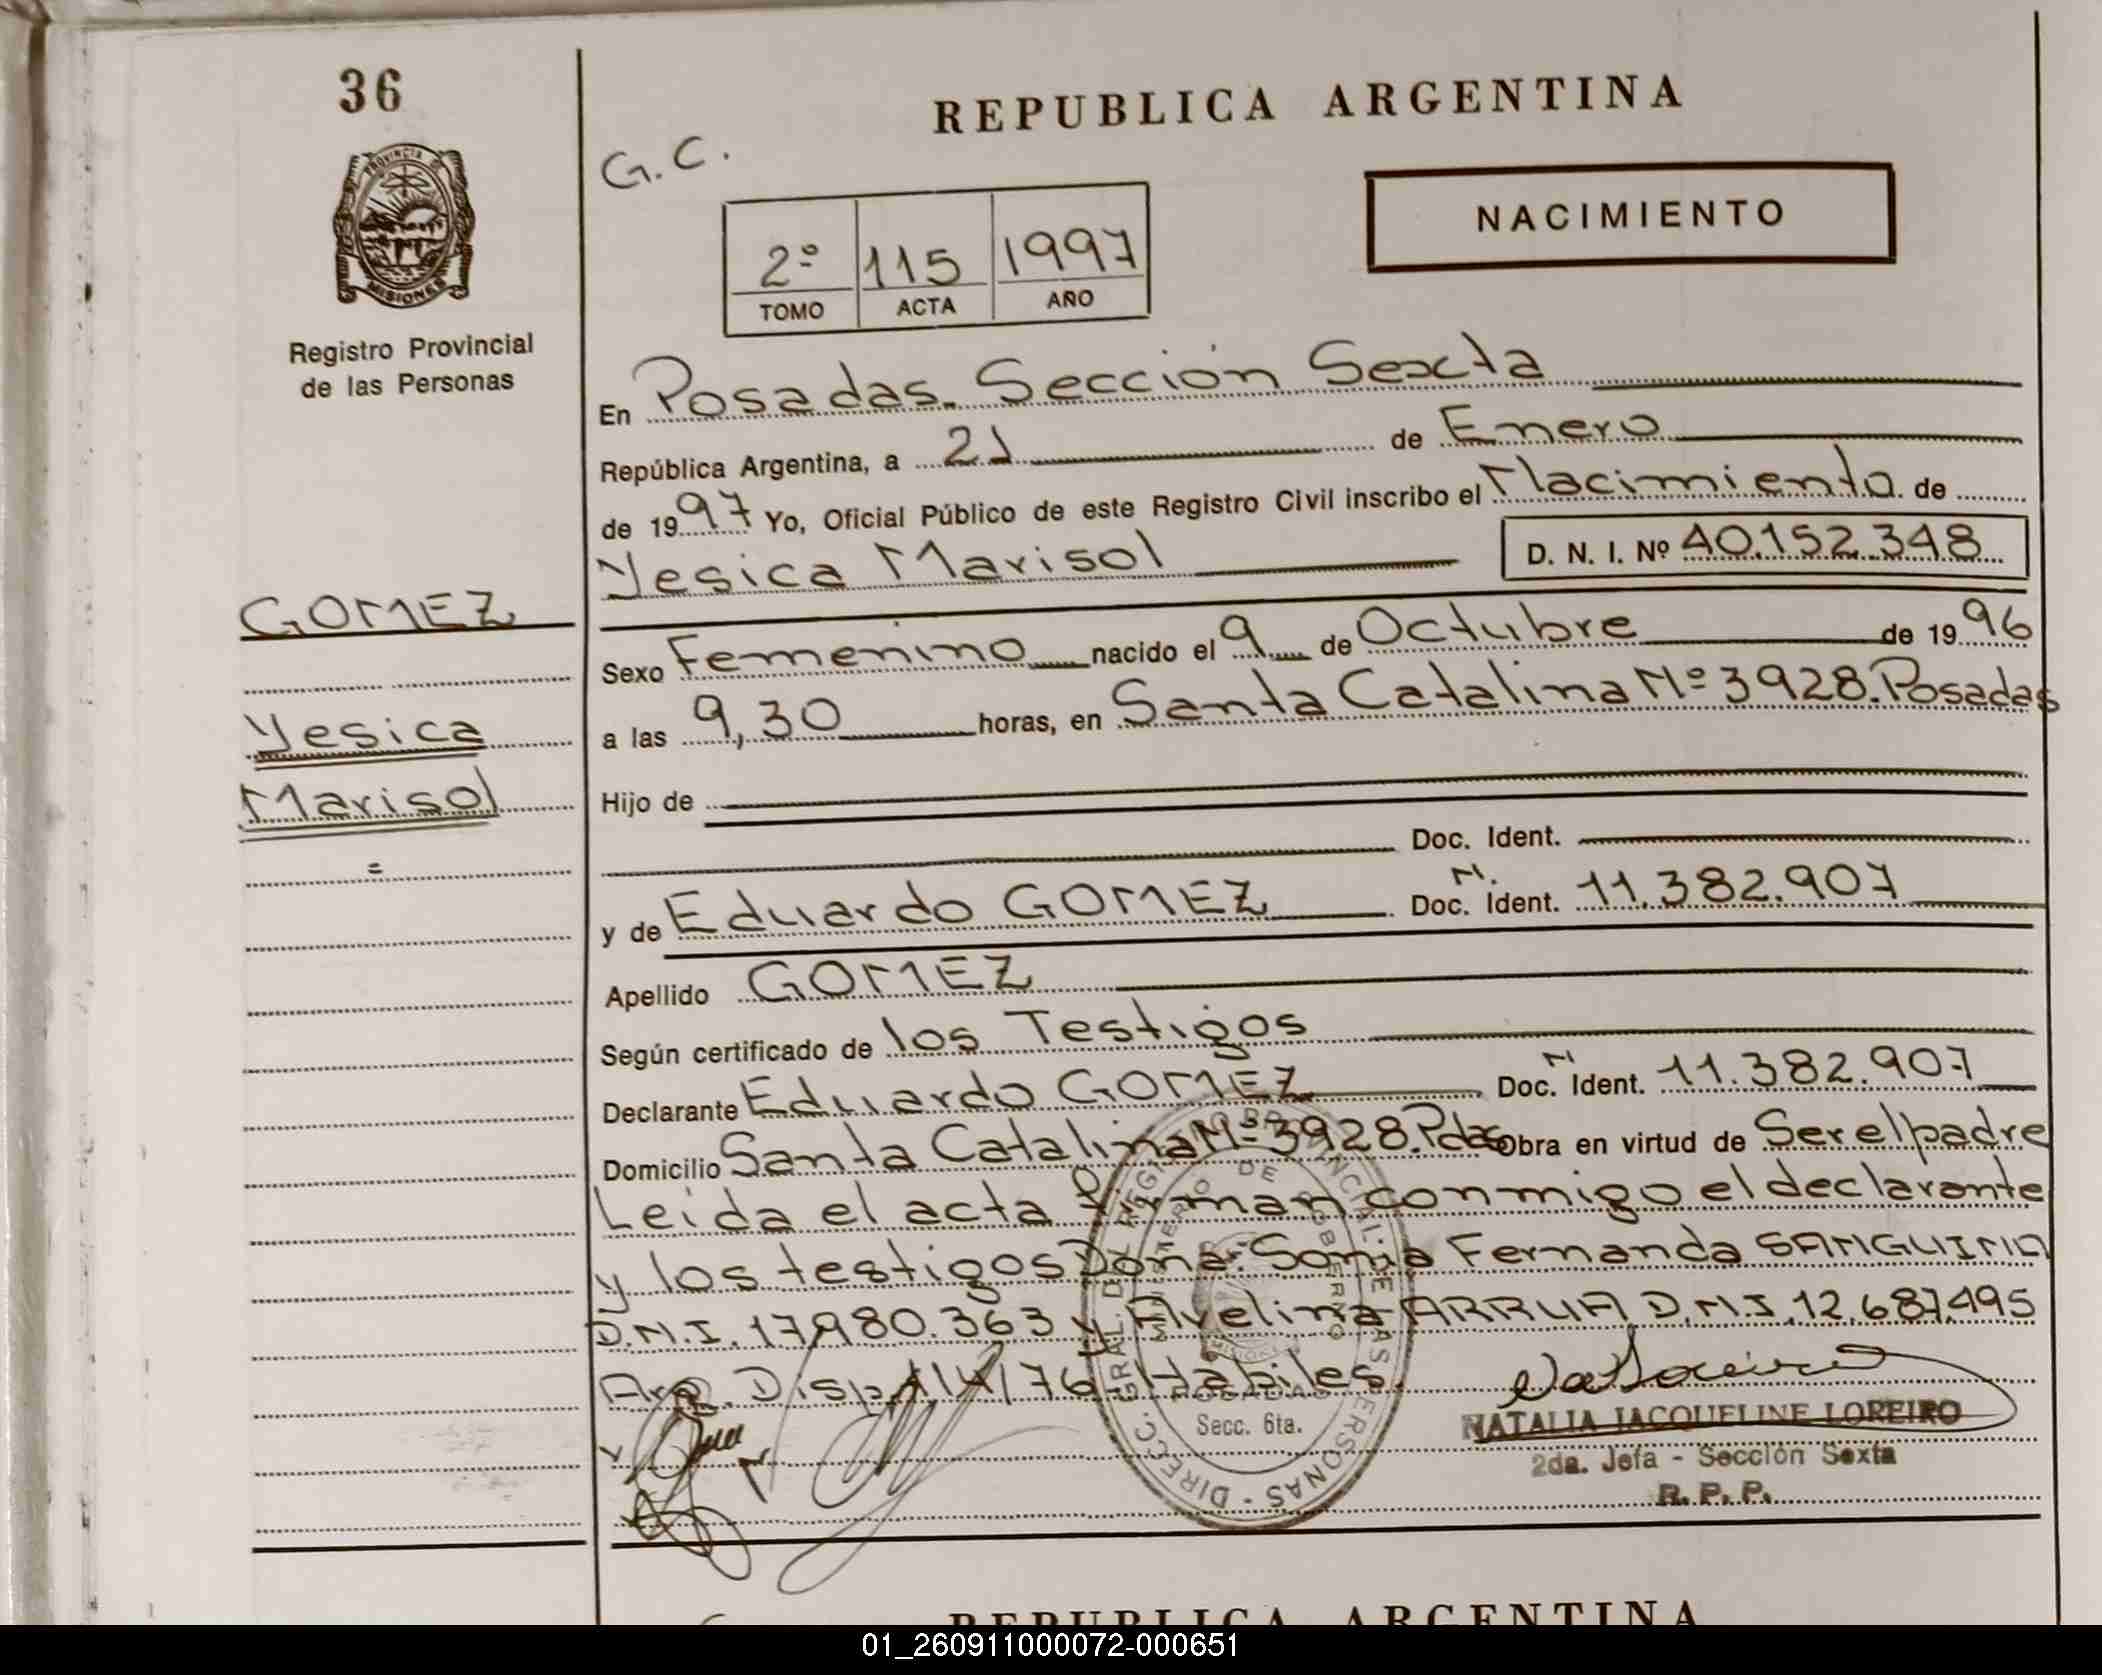 36
REPUBLICA ARGENTINA
G.C.
NACIMIENTO
2º 115 1997
TOMO ACTA AÑO
PROVINCIA DE
MISIONES
Registro Provincial
de las Personas
En Posadas. Sección Sexta
República Argentina, a 21 de Enero
de 1997 Yo, Oficial Público de este Registro Civil inscribo el Nacimiento de
Yesica Marisol D. N. I. Nº 40.152.348
GOMEZ
Yesica
Marisol
=
Sexo Femenino nacido el 9 de Octubre de 1996
a las 9,30 horas, en Santa Catalina Nº 3928. Posadas
Hijo de
Doc. Ident.
y de Eduardo GOMEZ Doc. N. Ident. 11.382.907
Apellido GOMEZ
Según certificado de los Testigos
Declarante Eduardo GOMEZ Doc. N. Ident. 11.382.907
Domicilio Santa Catalina Nº 3928. Pdas Obra en virtud de Ser el padre
Leida el acta firman conmigo el declarante
y los testigos Doña: Sonia Fernanda SANGUINA
D.N.I. 17.980.363 y Avelina ARRUA D.N.I. 12.687.495
Disp. 114/76 Habiles.
DIRECC. GRAL. DEL REGISTRO PROVINCIAL DE LAS PERSONAS
MINISTERIO DE GOBIERNO
MISIONES
POSADAS
Secc. 6ta.
NATALIA JACQUELINE LOREIRO
2da. Jefa - Sección Sexta
R. P. P.
REPUBLICA ARGENTINA
01_260911000072-000651